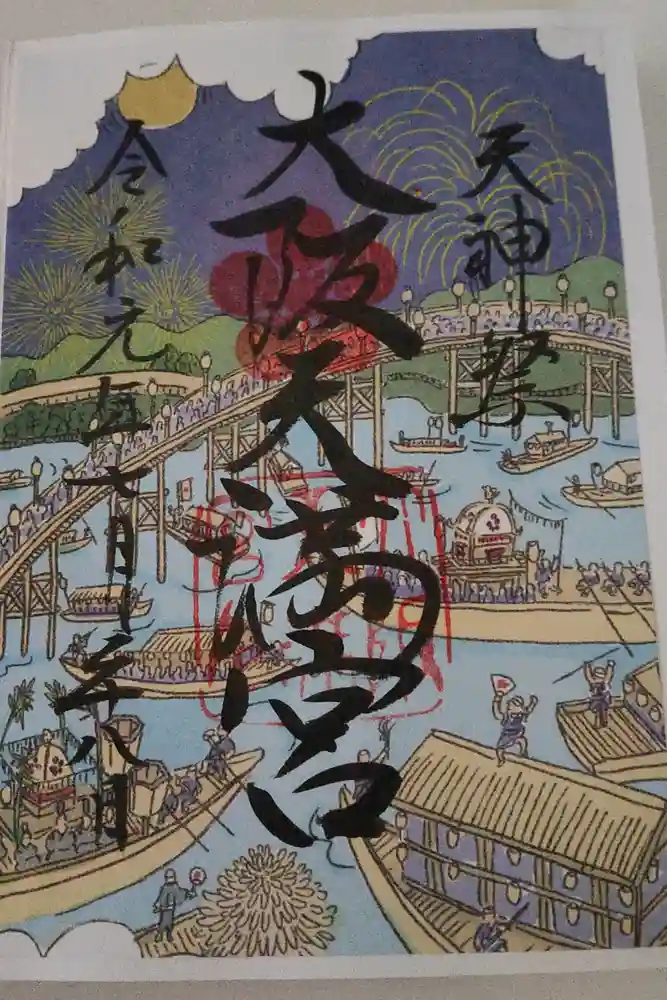 天神祭
大阪天満宮
令和元年七月二十八日